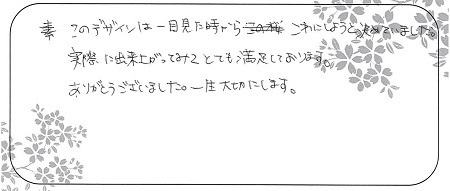 素 このデザインは一目見た時から これにしようと決めていました。
実際に出来上がってみてとても満足しております。
ありがとうございました。一生大切にします。